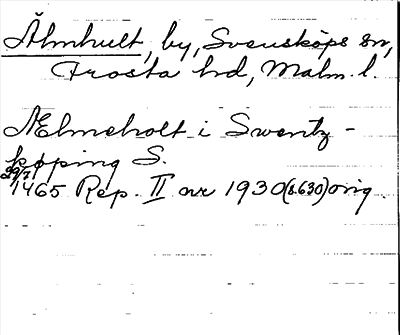 Älmhult, by, Svensköps sn,
Frosta hd, Malm. l.
Ælmeholt i Swentz-
køping S.
29/7 1465 Rep. II nr 1930 (s. 630) orig.